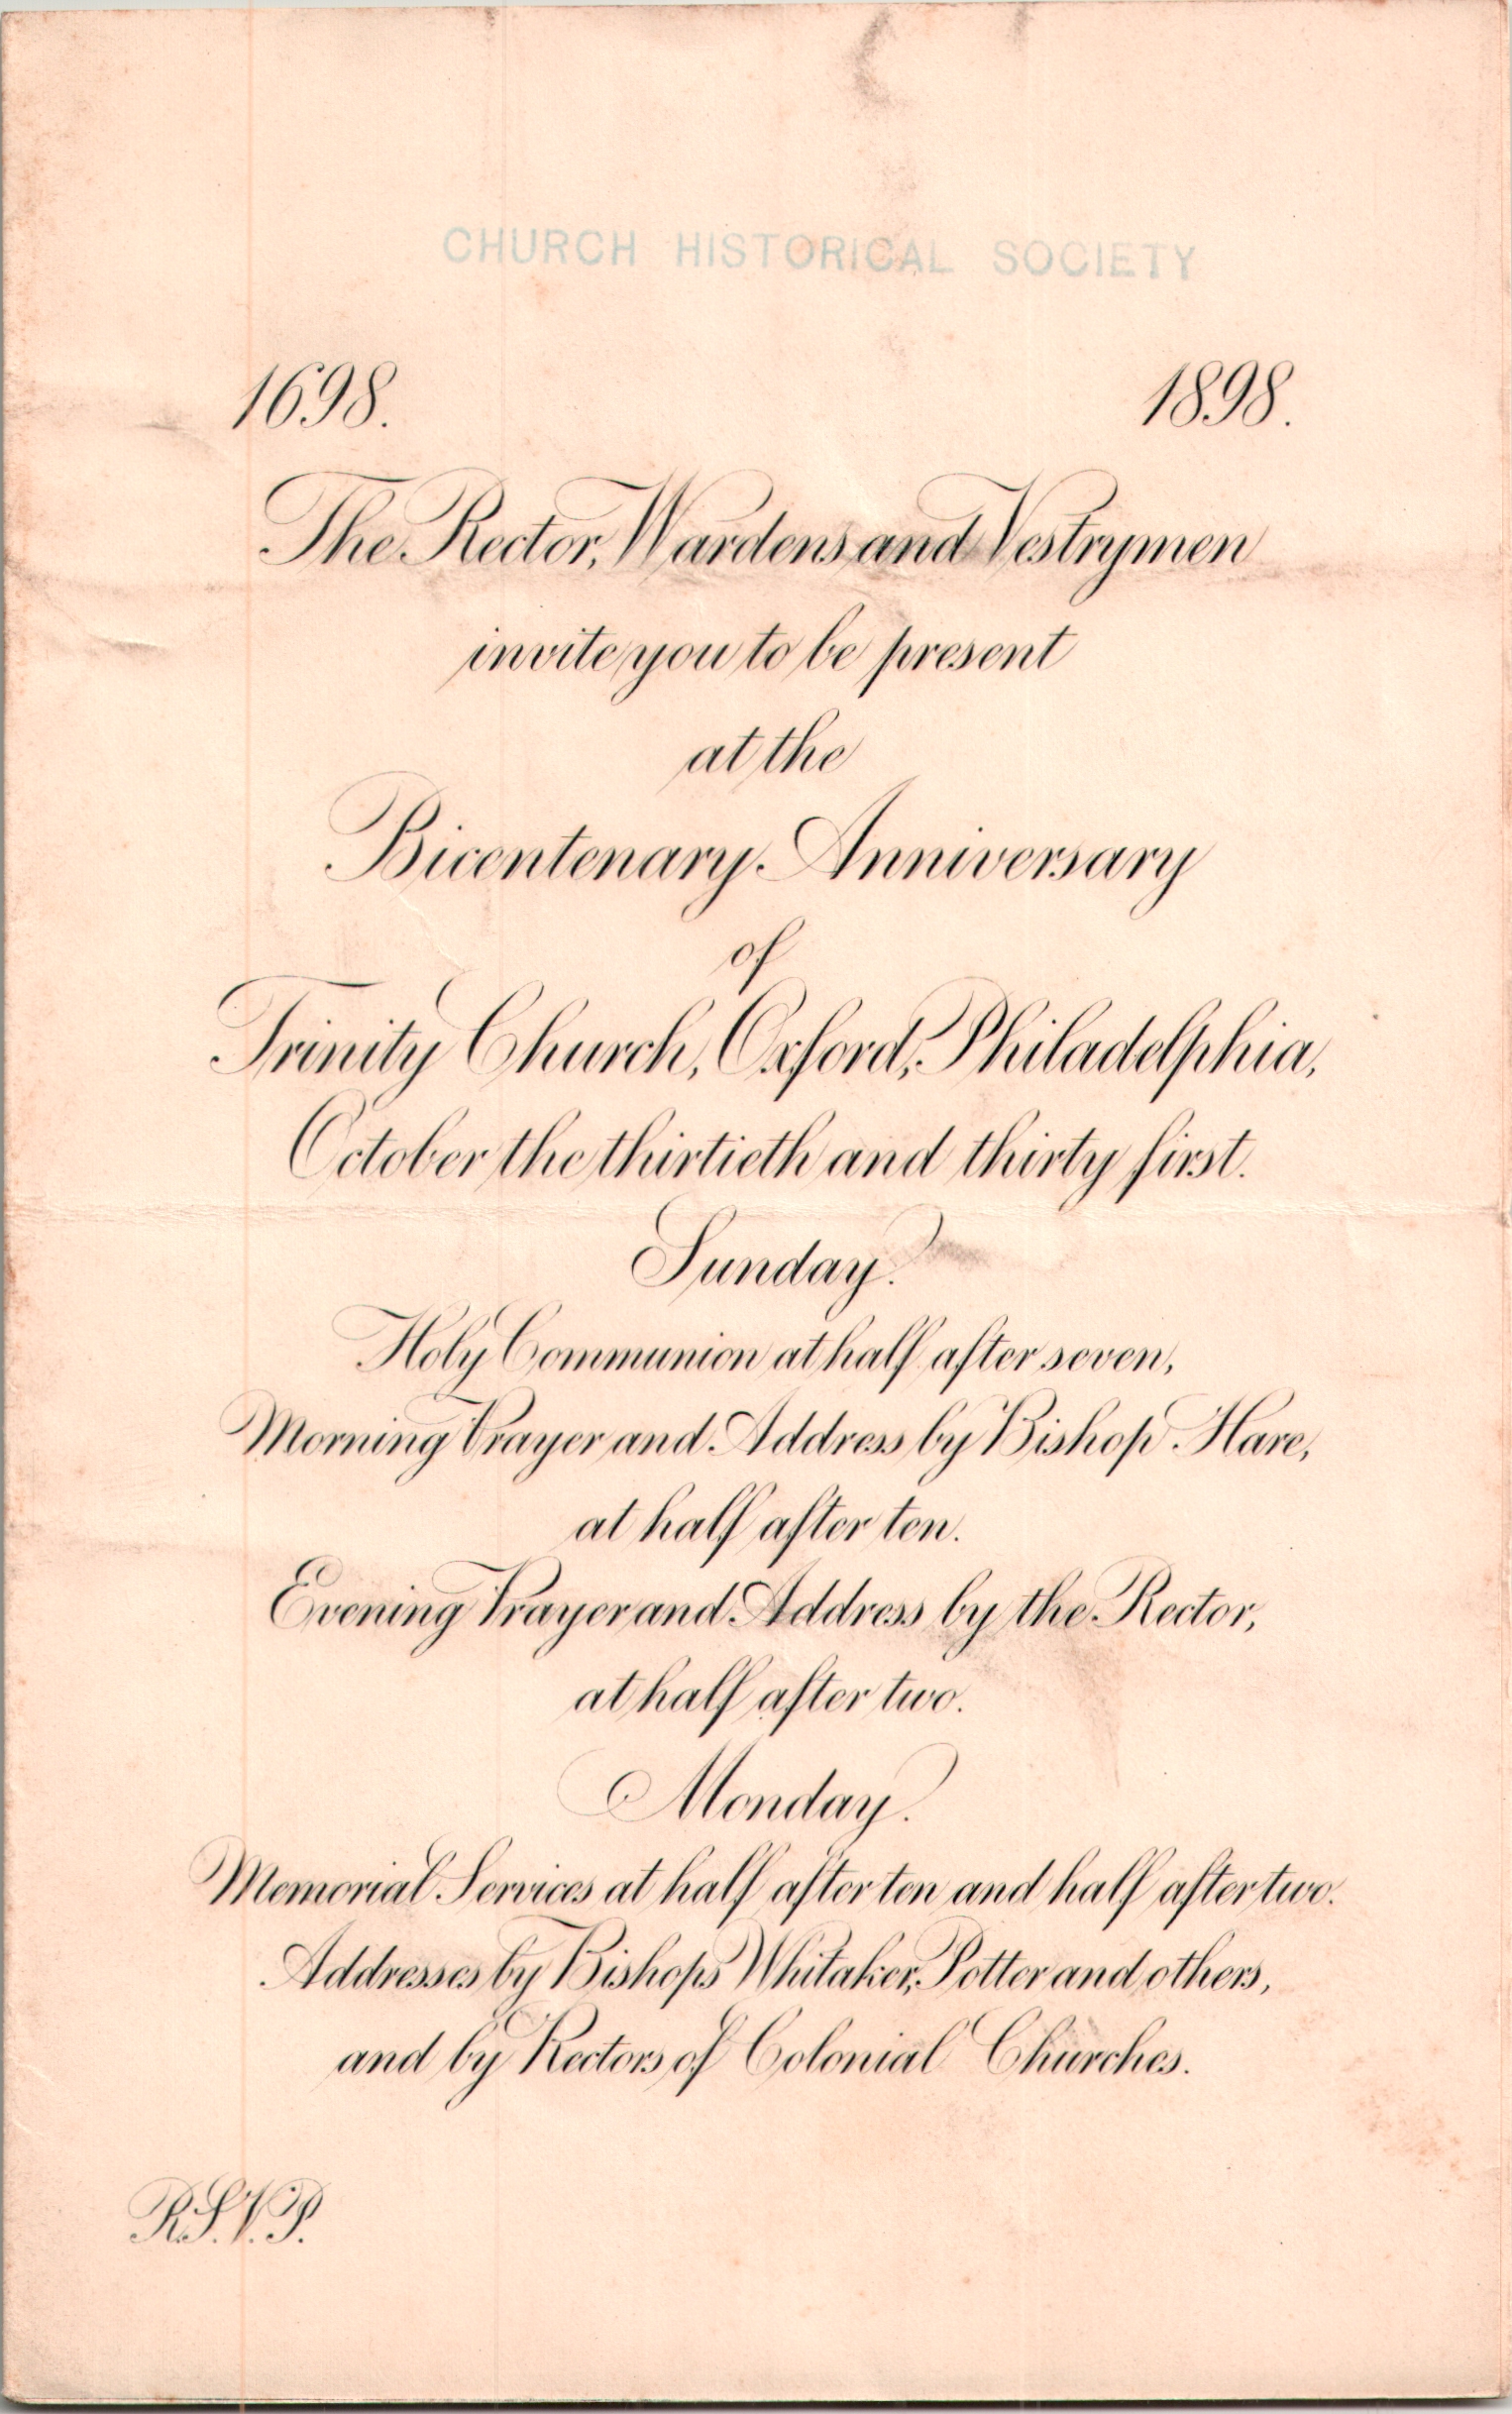 CHURCH HISTORICAL SOCIETY
1698. 1898.
The Rector, Wardens and Vestrymen
invite you to be present
at the
Bicentenary Anniversary
of
Trinity Church, Oxford, Philadelphia,
October the thirtieth and thirty first.
Sunday.
Holy Communion at half after seven,
Morning Prayer and Address by Bishop Hare,
at half after ten.
Evening Prayer and Address by the Rector,
at half after two.
Monday.
Memorial Services at half after ten and half after two.
Addresses by Bishops Whitaker, Potter and others,
and by Rectors of Colonial Churches.
R.S.V.P.